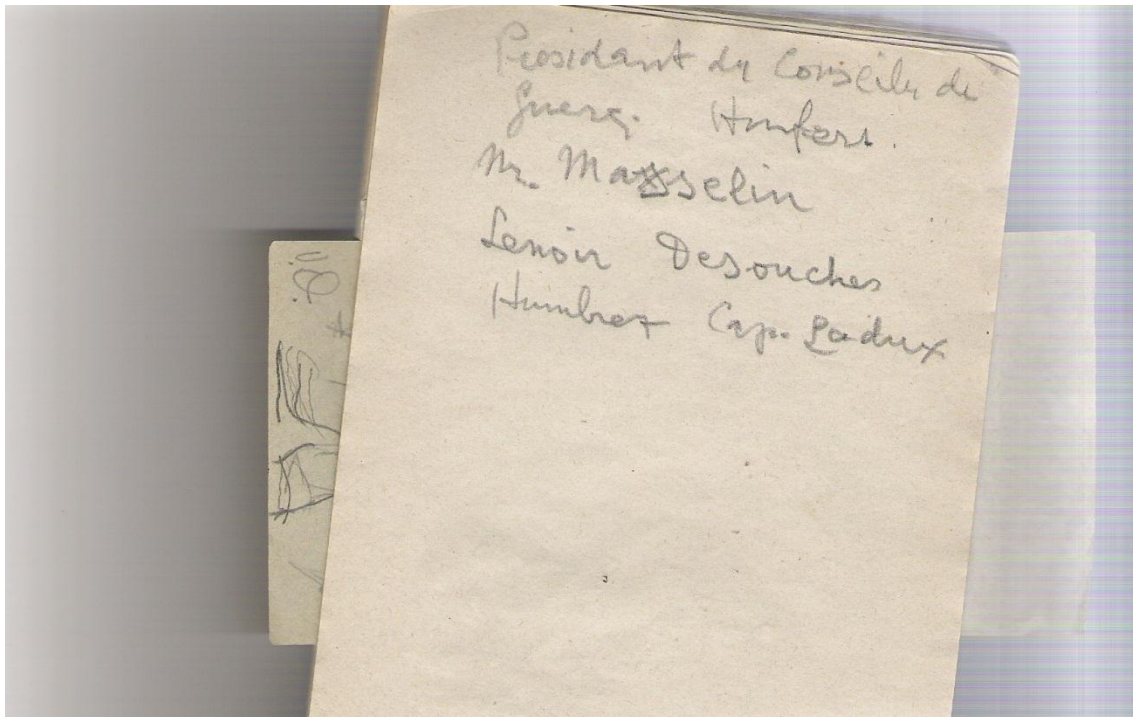 Presidant du Conseils de
Guere. Humbert.
Mr. Masselin
Lenoir Desouches
Humbret Cap. Ladux